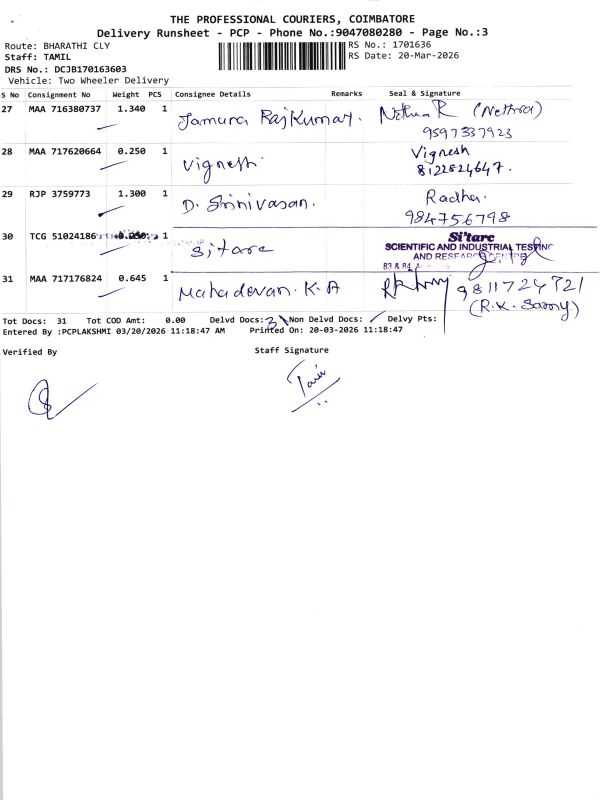 THE PROFESSIONAL COURIERS, COIMBATORE
Delivery Runsheet - PCP - Phone No.:9047080280 - Page No.:3
Route: BHARATHI CLY
RS No.: 1701636
Staff: TAMIL
RS Date: 20-Mar-2026
DRS No.: DCJB170163603
Vehicle: Two Wheeler Delivery
S No Consignment No Weight PCS Consignee Details Remarks Seal & Signature
27 MAA 716380737 1.340 1 Jamuna Rajkumar. (Nethra)
9597337923
28 MAA 717620664 0.250 1 Vignesh. Vignesh
8122824647.
29 RJP 3759773 1.300 1 D. Srinivasan. Radha.
984756798
30 TCG 51024186 0.250 1 Sitarc Si'tarc
SCIENTIFIC AND INDUSTRIAL TESTING
AND RESEARCH CENTRE
83 & 84
31 MAA 717176824 0.645 1 Mahadevan. K. A 9811724721
(R.K. Samy)
Tot Docs: 31 Tot COD Amt: 0.00 Delvd Docs: 31 Non Delvd Docs: Delvy Pts:
Entered By :PCPLAKSHMI 03/20/2026 11:18:47 AM Printed On: 20-03-2026 11:18:47
Verified By Staff Signature